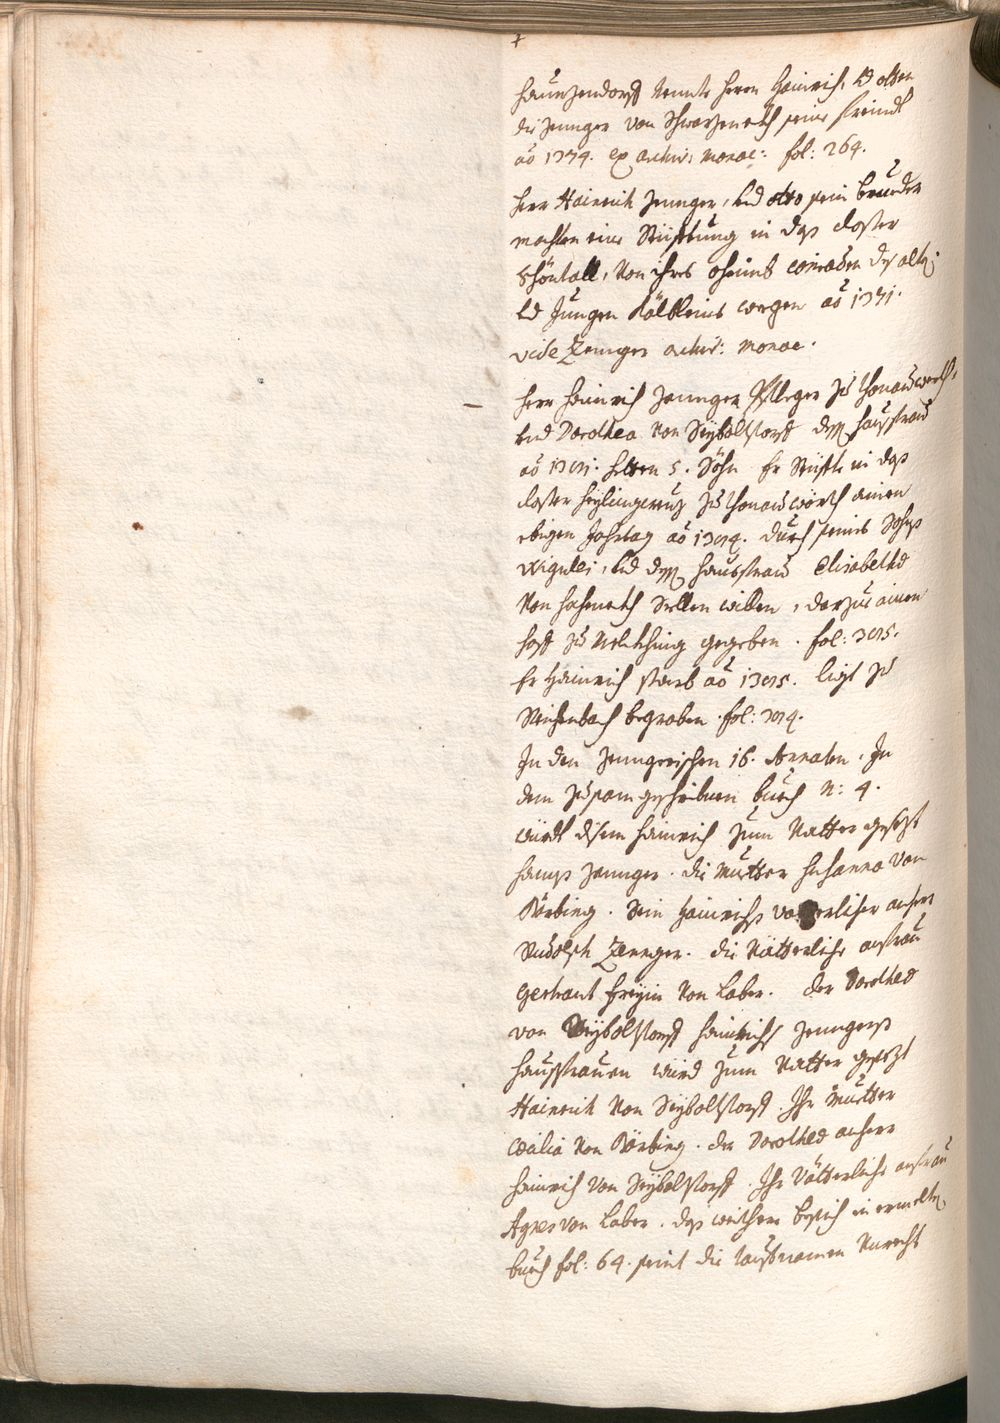 haunzendorff nennt herrn Hainrich, Vnd otten
die Zennger von Schwarzenekh seine freundt
aō 1374. ex archiv: Monac: fol: 264.
herr Hainrich Zennger, Vnd otto sein brueder
machten eine Stüfftung in das closter
Schöntall, von ihres oheimbs conraden des alten
Vnd Jungen wegen aō 1371.
vide Zenger archiv: Monac.
herr Hainrich Zennger Pfleger zu thonauwerth,
Vnd Dorothea von Seyboltstorff dessen hausfrau
aō hetten 5. Söhn Er Stüffte in das
closter heyligcreuz zu thonauwörth ainen
ebigen Jahrtag aō durch seines Sohns
Wigulei, Vnd dessen hausfrau Elisabetha
von Sellen willen, darzue ainen
hoff zu gegeben. fol:
Er Hainrich starb aō ligt zu
Reichenbach begraben. fol:
In den Zenngerischen 16. Annaten. In
dem zusam geschribnen buech N: 4.
würdt disem Hainrich zum Vatter gesezt
hanns Zennger. die Muetter Susanna von
Pärbing. Sein Hainrichs vatterlicher anherr
Rudolph Zennger. die Vätterliche anfrau
Gertraut freyin von Laber. der Dorothea
von Seyboltstorff Hainrichs Zenngers
hausfrauen würd zum Vatter gesezt
Hainrich von Seyboltstorff. Ihr Muetter
Cecilia von Pärbing. der Dorothea anherr
Hainrich von Seyboltstorff. Ihr Vätterliche anfrau
Agnes von Laber. das weithere besich in ermelten
buech fol: 64. seint die taufnamen Vnrecht